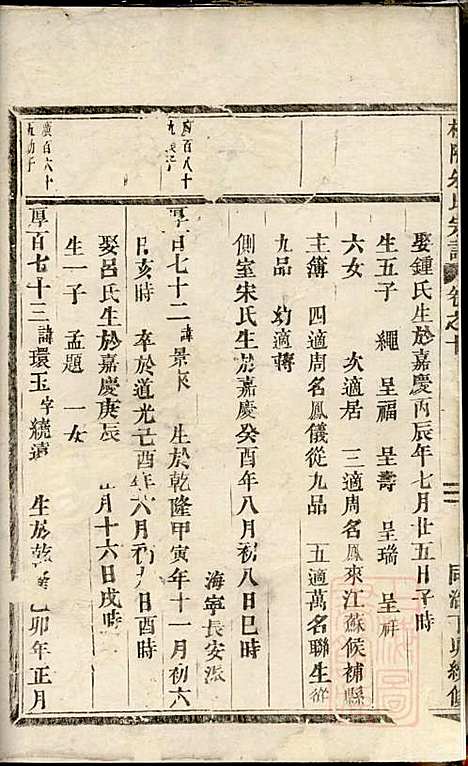 氏宗譜 卷之十
同治丁卯續修
娶鍾氏生於嘉慶丙辰年七月廿五日子時
生五子 繩 呈福 呈壽 呈瑞 呈祥
六女 次適居 三適周名鳳來江蘇候補縣
主簿 四適周名鳳儀從九品 五適萬名聯生從
九品 幼適蔣
側室宋氏生於嘉慶癸酉年八月初八日巳時
海寧長安派
百八十
厚百七十二 諱景 生於乾隆甲寅年十一月初六
日亥時 卒於道光 酉年六月初九日酉時
娶呂氏生於嘉慶庚辰 月十六日戌時
生一子 孟題 一女
廣百六十
五幼子
厚百七十三 諱環玉 字繞遠 生於乾隆 卯年正月